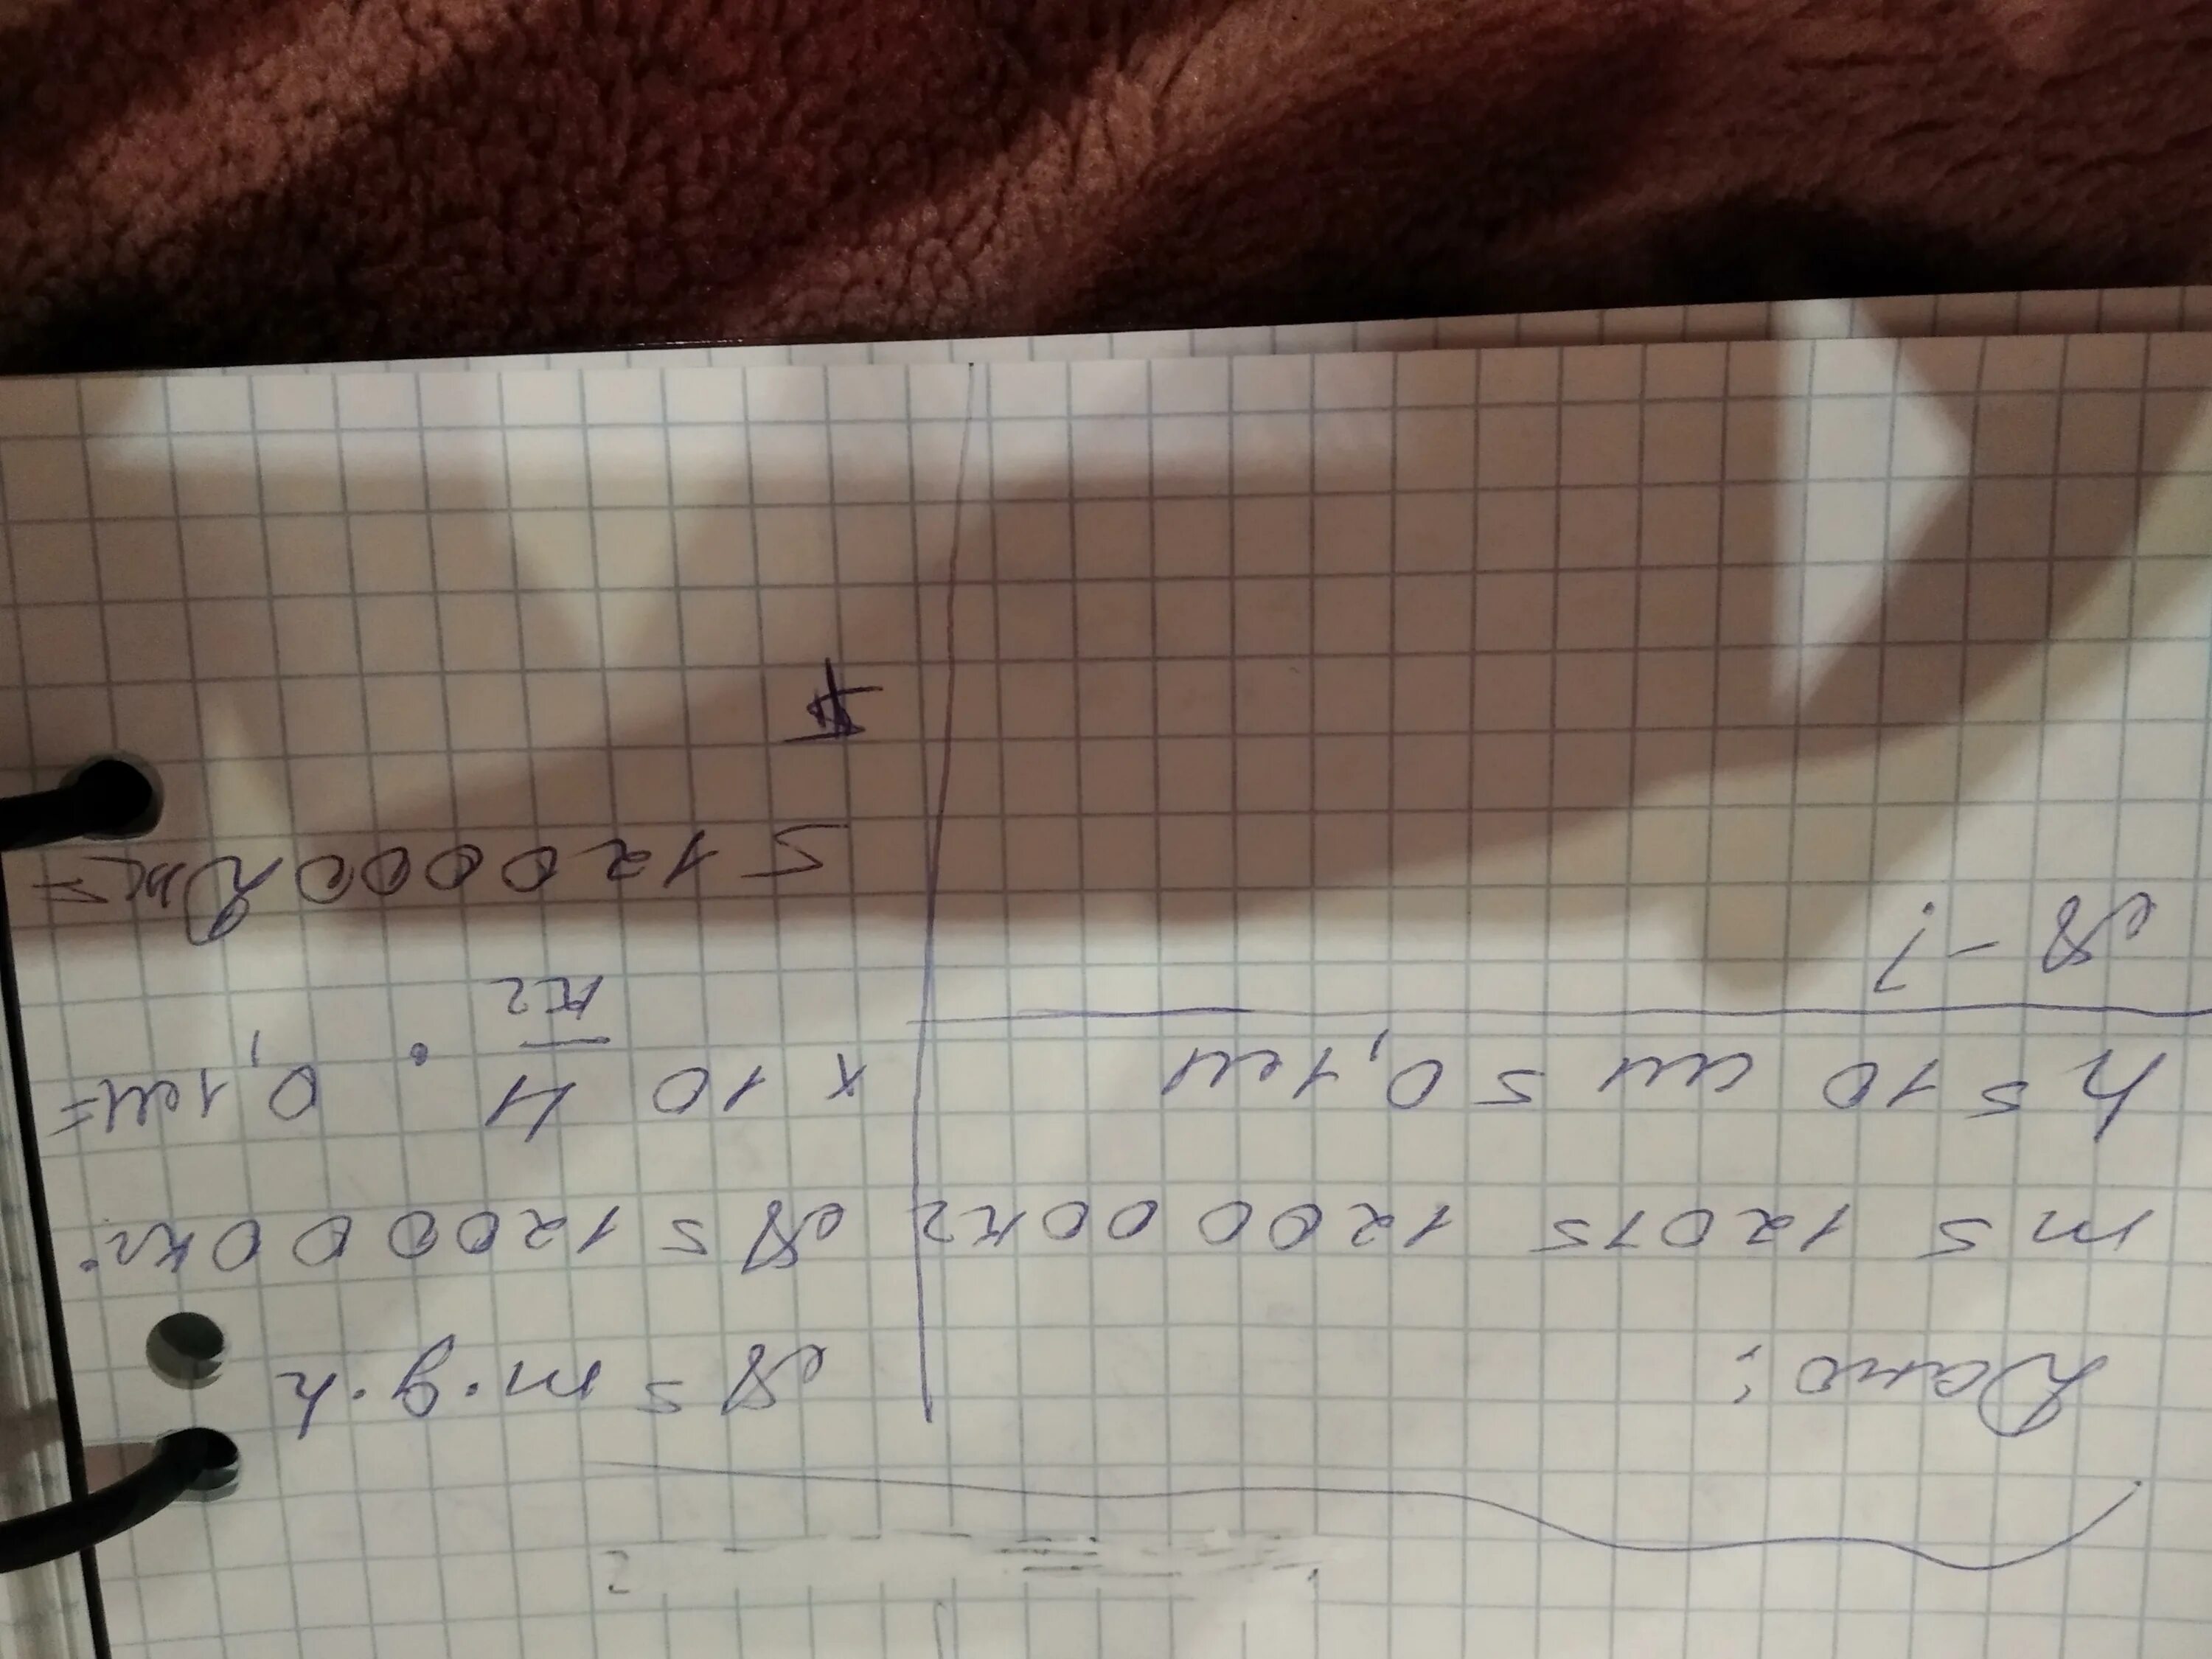 Дано:
m = 120т = 120000кг
h = 10 см = 0,1м
A - ?
A = m·g·h
A = 120000кг·
× 10 Н/кг · 0,1м =
= 120000Дж =